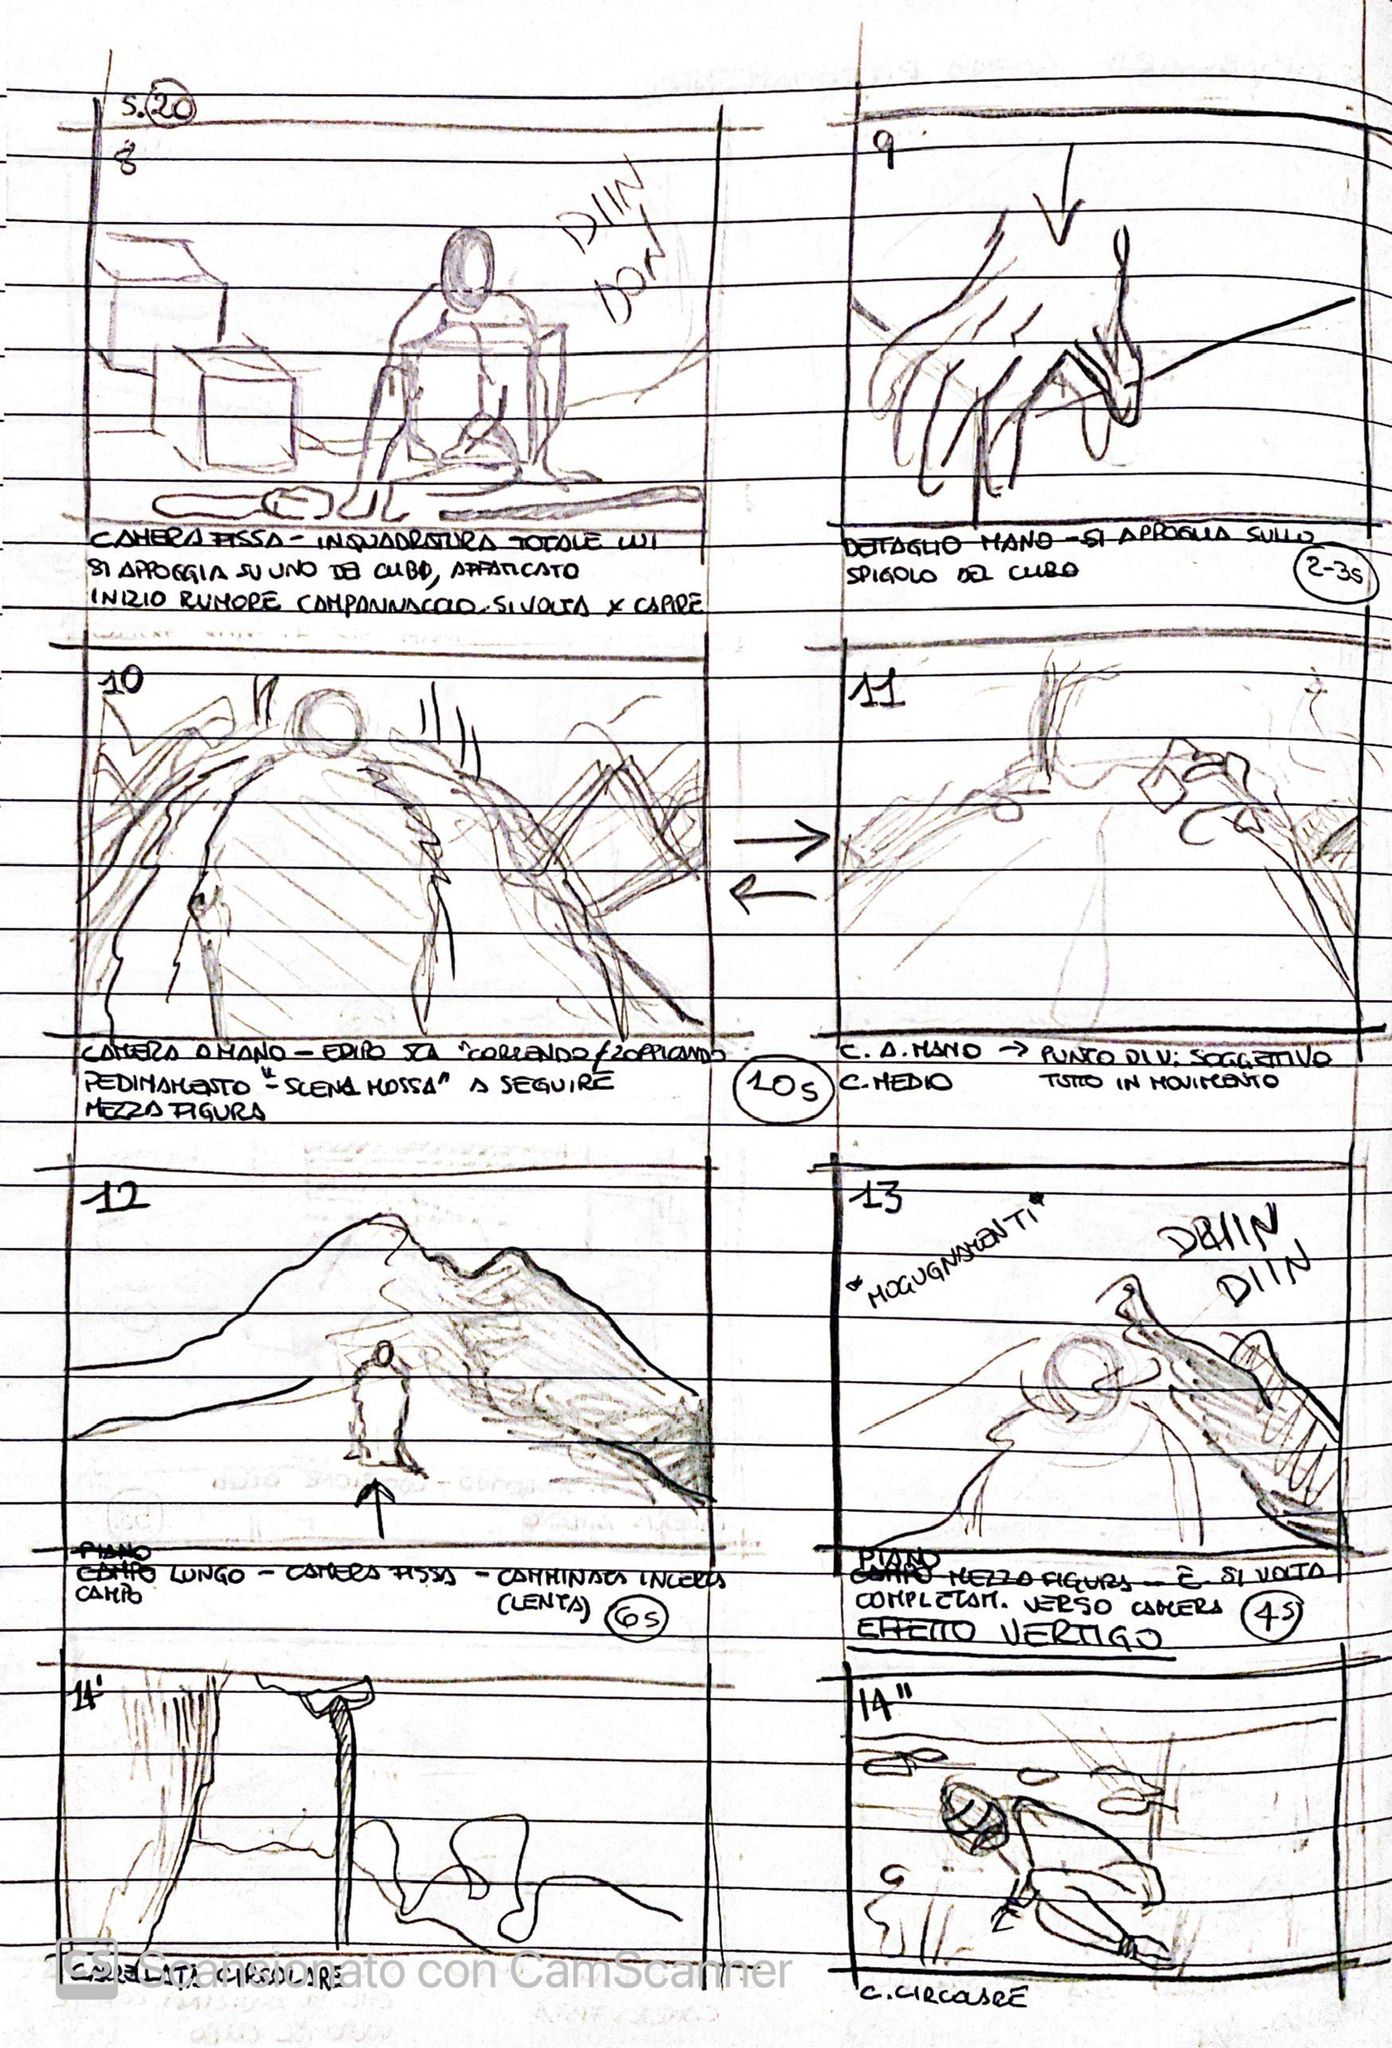 S.20
8
DIIN
DON
CAMERA FISSA - INQUADRATURA TOTALE LUI
SI APPOGGIA SU UNO DEI CUBO, AFFATICATO
INIZIO RUMORE CAMPANNACCIO. SI VOLTA X CAPIRE
9
DETAGLIO MANO - SI APPOGLIA SULLO
SPIGOLO DEL CUBO
2-3s
10
CAMERA A MANO - EDIPO STA "CORRENDO/ZOPPICANDO
PEDINAMENTO "- SCENA MOSSA" A SEGUIRE
MEZZA FIGURA
10s
11
C. A. MANO → PUNTO DI V: SOGGETTIVO
C. MEDIO TUTTO IN MOVIMENTO
12
PIANO
CAMPO LUNGO - CAMERA FISSA - CAMMINATA INCERTA
CAMPO (LENTA) 6s
13
*MOGUGNAMENTI*
DRIIN
DIIN
PIANO
CAMPO MEZZA FIGURA - E. SI VOLTA
COMPLETAM. VERSO CAMERA 4s
EFFETTO VERTIGO
14'
CARRELLATA CIRCOLARE
14"
C. CIRCOLARE
CS Scansionato con CamScanner